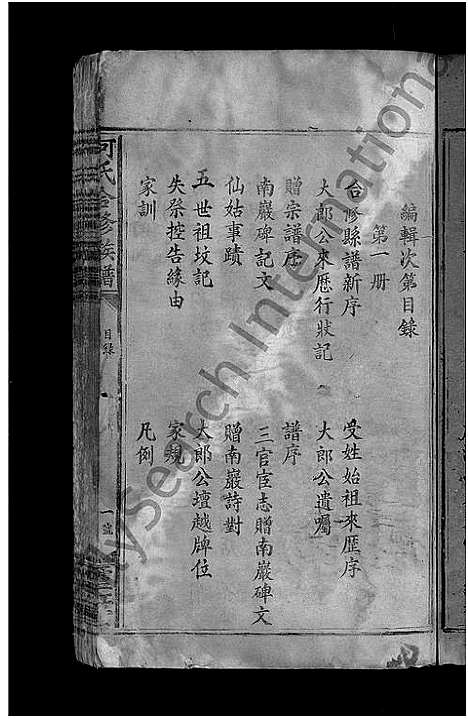 編輯次第目錄
第一册
合修縣譜新序
受姓始祖來歷序
大郎公來歷行狀記
大郎公遺囑
贈宗譜序
譜序
南巖碑記文
三官宦志贈南巖碑文
仙姑事蹟
贈南巖詩對
五世祖坟記
大郎公壇越牌位
失祭控告緣由
家規
家訓
凡例
何氏合修族譜
目錄
一號
MySearch International